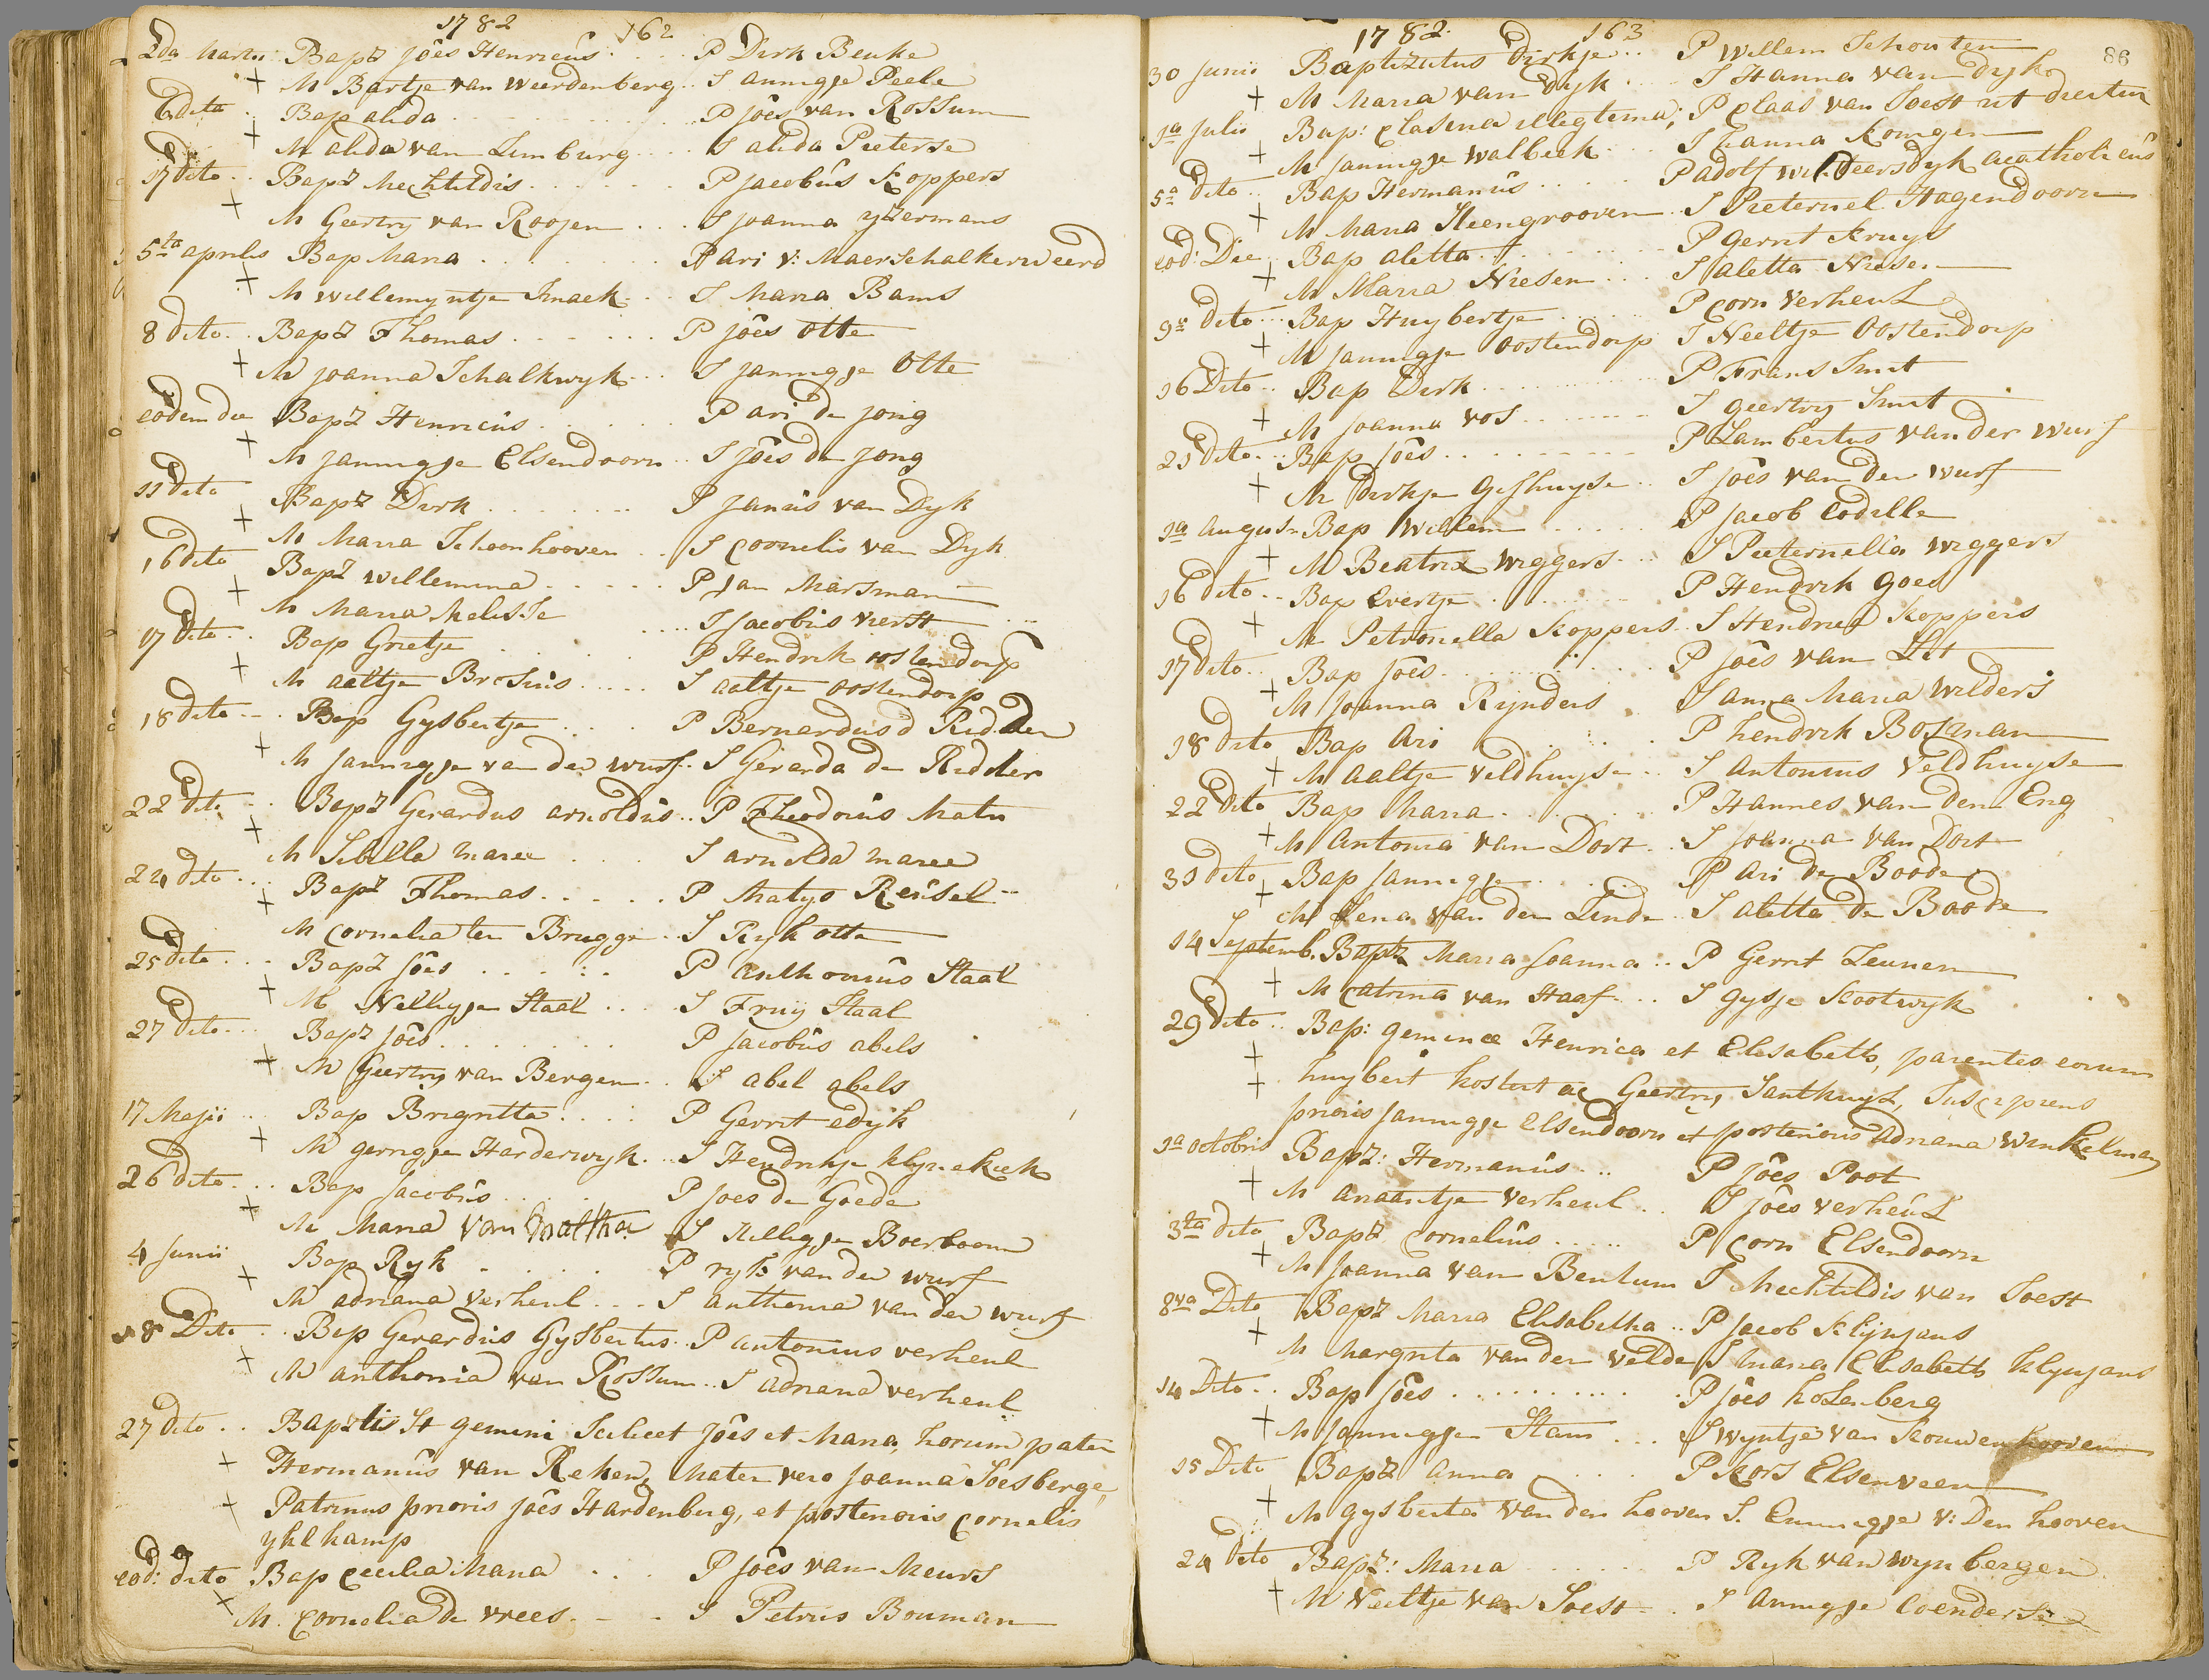 1782 162
2da Martii Bapz Joês Henricus P Dirk Beuke
+ M Bartje van Weerdenberg S annigje Peele
6 dito Bap alida P Joês van Rossum
+ M alida van Limburg S alida Pieterse
17 dito Bapz Mechtildis P Jacobus Koppers
+ M Geertry van Roojen S Joanna yzermans
5ta aprilis Bap Maria P Ari v: Maerschalkerweerd
+ M Willemyntje Smack S Maria Bams
8 dito Bapz Thomas P Joês Otte
+ M Joanna Schalkwyk S Jannigje Otte
eodem die Bapz Henricus P ari de Jong
+ M Jannigje Elsendoorn S Joês de Jong
11 dito Bapz Dirk P Janus van Dyk
+ M Maria Schoonhooven S Cornelis van Dyk
16 dito Bapz Willemina P Jan Marsman
+ M Maria Melisse S Jacobus Verst
17 dito Bap Grietje P Hendrik oostendorp
+ M aaltje Brosius S aaltje oostendorp
18 dito Bap Gysbertje P Bernardus d Ridder
+ M Jannigje van der wurf S Gerarda de Ridder
22 dito Bapz Gerardus arnoldus P Theodorus Mats
+ M Sibilla maree S arnolda maree
24 dito Bapz Thomas P Matys Reusel
+ M Cornelia ten Brugge S Ryk otte
25 dito Bapz Joês P anthonius Staal
+ M Nelligje Staal S Fruy Staal
27 dito Bapz Joês P Jacobus abels
+ M Geertry van Bergen S abel abels
17 Maji Bap Brigritta P Gerrit edyk
+ M gerrigje Harderwyk S Hendrikje klynekiek
26 dito Bap Jacobus P Joes de Goede
+ M Maria van S Nelligje Boerboom
4 Junii Bap Ryk P ryk van der wurf
+ M adriana verheul S anthonia van der wurf
18 Dito Bap Gerardus Gysbertus P antonius verheul
+ M anthonia van Rossum S adriana verheul
27 dito Bapztis St gemini Scilicet Joês et Maria, horum pater
+ Hermanus van Reken, Mater vero Joanna Soesberge,
+ Patrinus prioris Joês Hardenberg, et posterioris Cornelis
yklkamp
eod: dito Bap Cecilia Maria P Joês van Meurs
+ M. Cornelia de vrees S Petrus Bouman
1782 163
86
30 Junii Baptizatus Dirkje P Willem Schouten
+ M Maria van Dyk S Hanna van Dyk
1a Julii Bap: Clasina illegtema; P Claas van Soest ut dicitur
+ M Jannigje Walbeek S hanna Koningen
5a dito Bap Hermanus P adolf Wildeersdyk acatholicus
+ M Maria Steengrooven S Pieternel Hagendoorn
eod: Die Bap aletta P gerrit Kruys
+ M Maria Niesen S aletta Niesen
9a dito Bap Huybertje P Corn Verheul
+ M Jannigje Oostendorp S Neeltje Oostendorp
16 Dito Bap Dirk P Frans Smit
+ M Joanna vos S geertry Smit
21 dito Bap Joês P Lambertus van der wurf
+ M Dirkje Gishuyse S Joês van der wurf
1a August Bap Willem P Jacob Codille
+ M Beatrix wiggers S Pieternella wiggers
16 dito Bap Evertje P Hendrik Goes
+ M Petronella Koppers S Hendrica Koppers
17 dito Bap Joês P Joês van Lit
+ M Joanna Rynders S anna Maria Wilders
18 dito Bap Ari P hendrik Bosman
+ M aaltje veldhuyse S Antonius Veldhuyse
22 dito Bap Maria P Hannes van den Eng
+ M Antonia van Dort S Joanna van Dort
31 dito Bap Jannigje P Ari de Boode
+ M Lena van der Linde S aletta de Boode
14 Septemb. Baptz Maria Joanna P Gerrit Leunen
+ M Catrina van Haaf S Gysje Kootwyk
29 dito Bap: geminae Henrica et Elisabeth, parentes eorum
+ huybert kostert ac Geertry Santhuys, Suscipiens
+ prioris Jannigje Elsendoorn et posterioris Adriana Winkelman
1a octobris Bapz: Hermanus P Joês Poot
+ M Anaantje Verheul S Joês verheul
3tia dito Bapz Cornelius P Corn Elsendoorn
+ M Joanna van Benlum S Mechtildis van Soest
8va Dito Bapz Maria Elisabetha P Jacob Klynjans
+ M Margrita van der Velde S Maria Elisabeth Klynjans
14 Dito Bap Joês P Joês holenberg
+ M Jannigje Stam S Wyntje van Kouwenhooven
15 Dito Bapz Anna P Kors Elsenveen
+ M Gysberta van den hooven S. Emmigje v: Den hooven
24 Dito Bapz: Maria P Ryk van wynbergen
+ M Neeltje van Soest S Annigje Coenderse